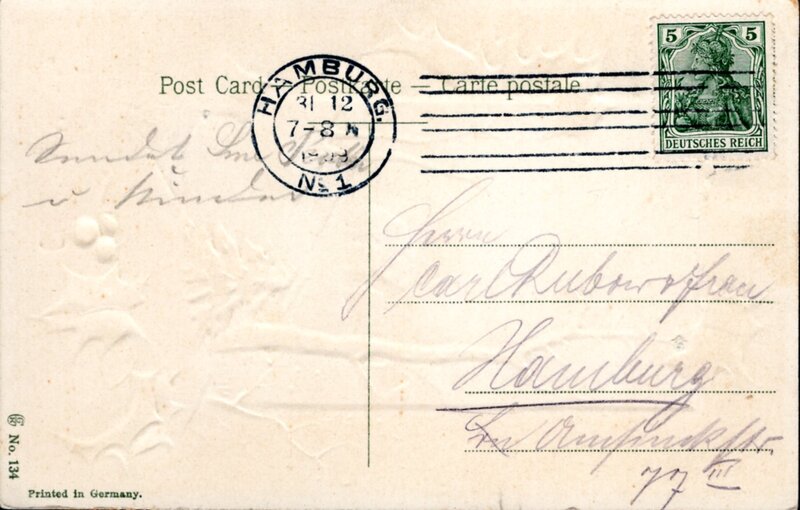 Post Card – Postkarte – Carte postale
HAMBURG.
31 12
7–8 N
No 1
5 5
DEUTSCHES REICH
Sendet
u Kinder
Herrn
Carl Rubow & Frau
Hamburg
77 III
No. 134
Printed in Germany.